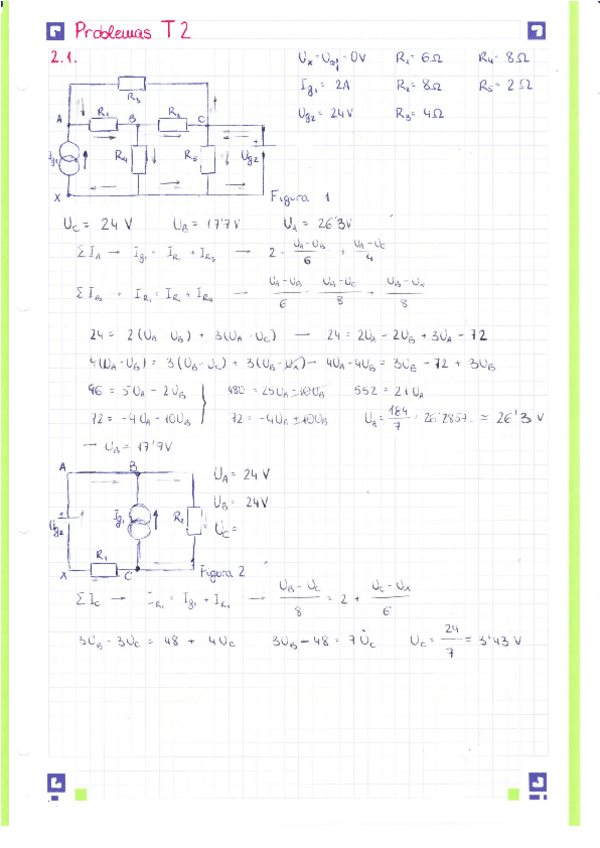 Problemas T2
2.1.
Ux = Uref = 0V R1 = 6Ω R4 = 8Ω
Ig1 = 2A R2 = 8Ω R5 = 2Ω
Ug2 = 24V R3 = 4Ω
R3
A R1 B R2 C
Ig1 R4 R5 Ug2
X
Figura 1
UC = 24 V UB = 17'7V UA = 26'3V
ΣIA → Ig1 = IR1 + IR3 → 2 = (UA - UB)/6 + (UA - UC)/4
ΣIB → IR1 = IR2 + IR4 → (UA - UB)/6 = (UB - UC)/8 + (UB - UX)/8
24 = 2(UA - UB) + 3(UA - UC) → 24 = 2UA - 2UB + 3UA - 72
4(UA - UB) = 3(UB - UC) + 3(UB - UX) → 4UA - 4UB = 3UB - 72 + 3UB
96 = 5UA - 2UB } 480 = 25UA - 10UB 552 = 21UA
72 = -4UA + 10UB 72 = -4UA + 10UB UA = 184/7 = 26'2857 ≈ 26'3 V
→ UB = 17'7V
A B UA = 24 V
Ug2 Ig1 R2 UB = 24V
UC =
R1
X C Figura 2
ΣIC → IR2 = Ig1 + IR1 → (UB - UC)/8 = 2 + (UC - UX)/6
3UB - 3UC = 48 + 4UC 3UB - 48 = 7UC UC = 24/7 = 3'43 V